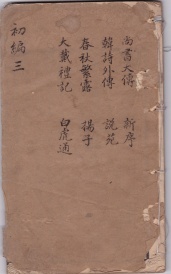 尚書大傳　新序
韓詩外傳　說苑
春秋繁露　揚子
大戴禮記　白虎通
初編三